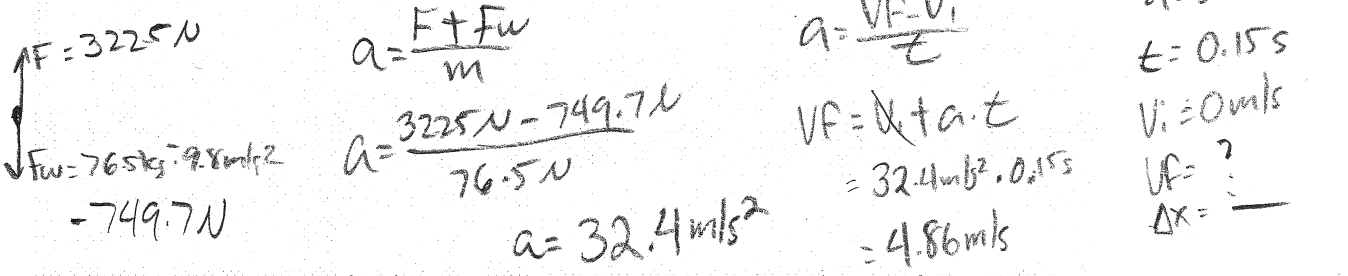 F = 3225 N
Fw = 76.5 kg · -9.8 m/s²
-749.7 N
a = (F + Fw) / m
a = (3225 N - 749.7 N) / 76.5 N
a = 32.4 m/s²
a = (VF - Vi) / t
VF = Vi + a · t
= 32.4 m/s² · 0.15 s
= 4.86 m/s
t = 0.15 s
Vi = 0 m/s
VF = ?
Δx = —